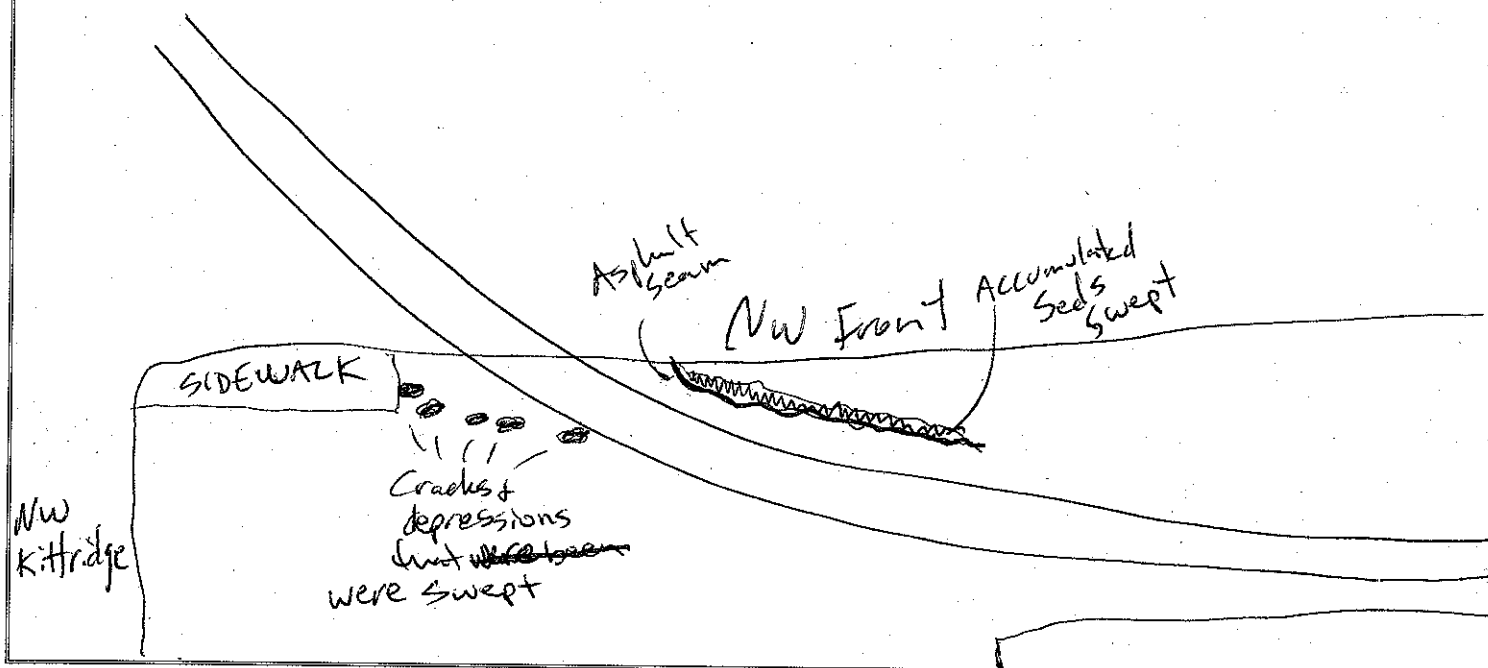 Asphalt
seam
NW Front
Accumulated
Seeds
swept
SIDEWALK
Cracks &
depressions
that
were swept
NW
Kittridge